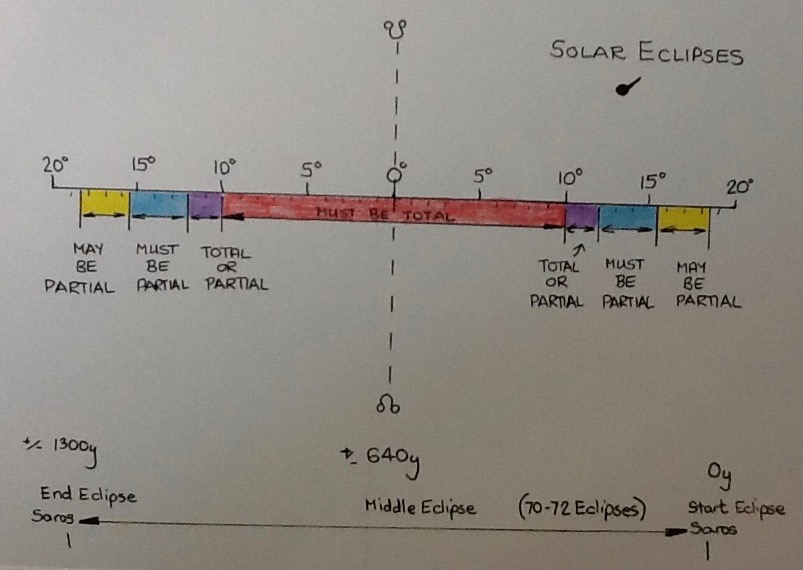 ☋
SOLAR ECLIPSES
20° 15° 10° 5° 0° 5° 10° 15° 20°
MUST BE TOTAL
MAY
BE
PARTIAL
MUST
BE
PARTIAL
TOTAL
OR
PARTIAL
TOTAL
OR
PARTIAL
MUST
BE
PARTIAL
MAY
BE
PARTIAL
☊
+/- 1300y
+- 640y
0y
End Eclipse
Saros
1
Middle Eclipse (70-72 Eclipses)
Start Eclipse
Saros
1